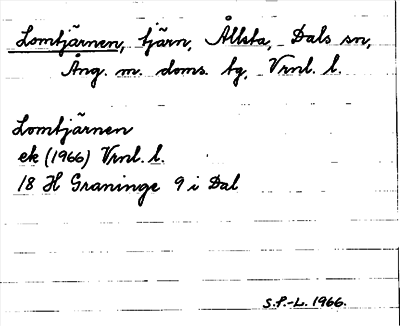 Lomtjärnen, tjärn, Ållsta, Dals sn,
Ång. m. doms. tg, Vrnl. l.
Lomtjärnen
ek (1966) Vrnl. l.
18 H Graninge 9 i Dal
S.P.-L. 1966.